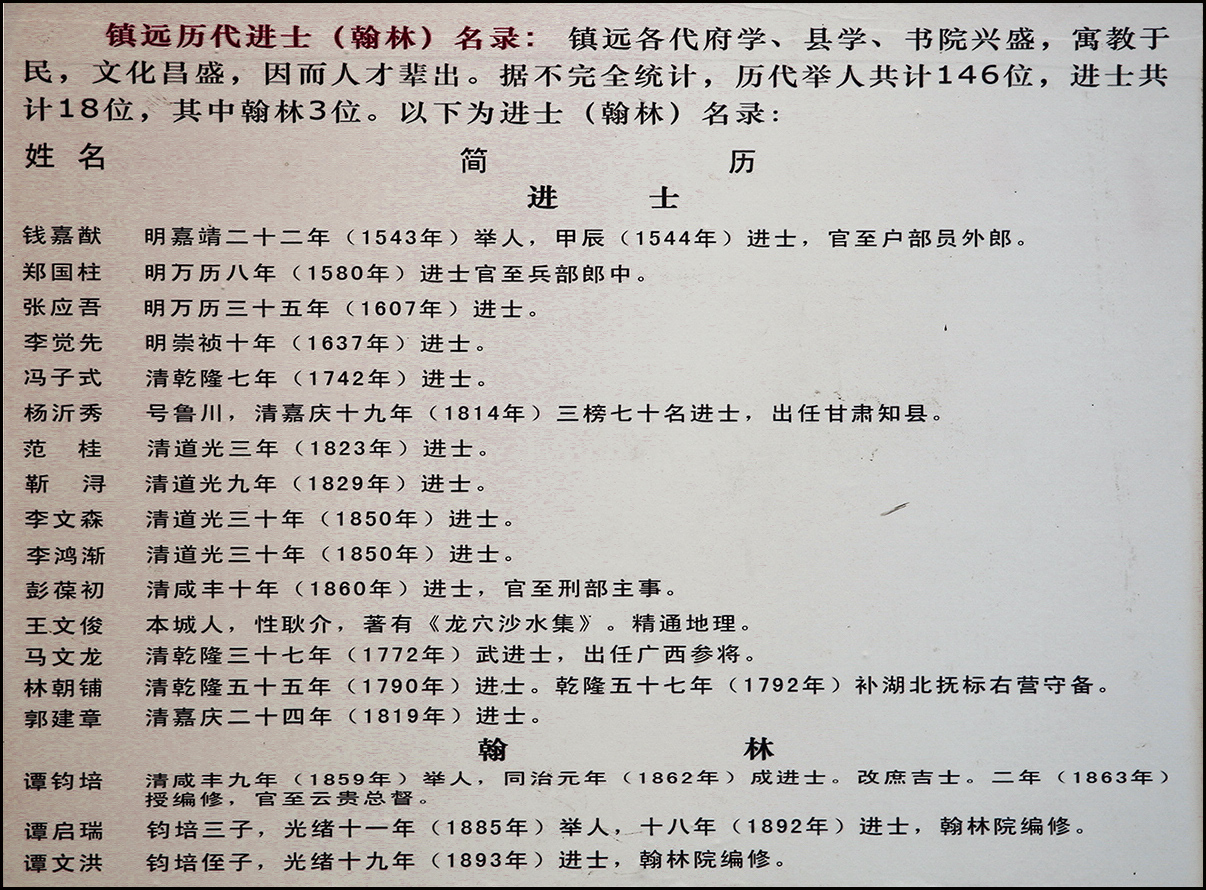 镇远历代进士（翰林）名录：镇远各代府学、县学、书院兴盛，寓教于
民，文化昌盛，因而人才辈出。据不完全统计，历代举人共计146位，进士共
计18位，其中翰林3位。以下为进士（翰林）名录：
姓 名 简 历
进 士
钱嘉猷 明嘉靖二十二年（1543年）举人，甲辰（1544年）进士，官至户部员外郎。
郑国柱 明万历八年（1580年）进士官至兵部郎中。
张应吾 明万历三十五年（1607年）进士。
李觉先 明崇祯十年（1637年）进士。
冯子式 清乾隆七年（1742年）进士。
杨沂秀 号鲁川，清嘉庆十九年（1814年）三榜七十名进士，出任甘肃知县。
范 桂 清道光三年（1823年）进士。
靳 浔 清道光九年（1829年）进士。
李文森 清道光三十年（1850年）进士。
李鸿渐 清道光三十年（1850年）进士。
彭葆初 清咸丰十年（1860年）进士，官至刑部主事。
王文俊 本城人，性耿介，著有《龙穴沙水集》。精通地理。
马文龙 清乾隆三十七年（1772年）武进士，出任广西参将。
林朝铺 清乾隆五十五年（1790年）进士。乾隆五十七年（1792年）补湖北抚标右营守备。
郭建章 清嘉庆二十四年（1819年）进士。
翰 林
谭钧培 清咸丰九年（1859年）举人，同治元年（1862年）成进士。改庶吉士。二年（1863年）
授编修，官至云贵总督。
谭启瑞 钧培三子，光绪十一年（1885年）举人，十八年（1892年）进士，翰林院编修。
谭文洪 钧培侄子，光绪十九年（1893年）进士，翰林院编修。